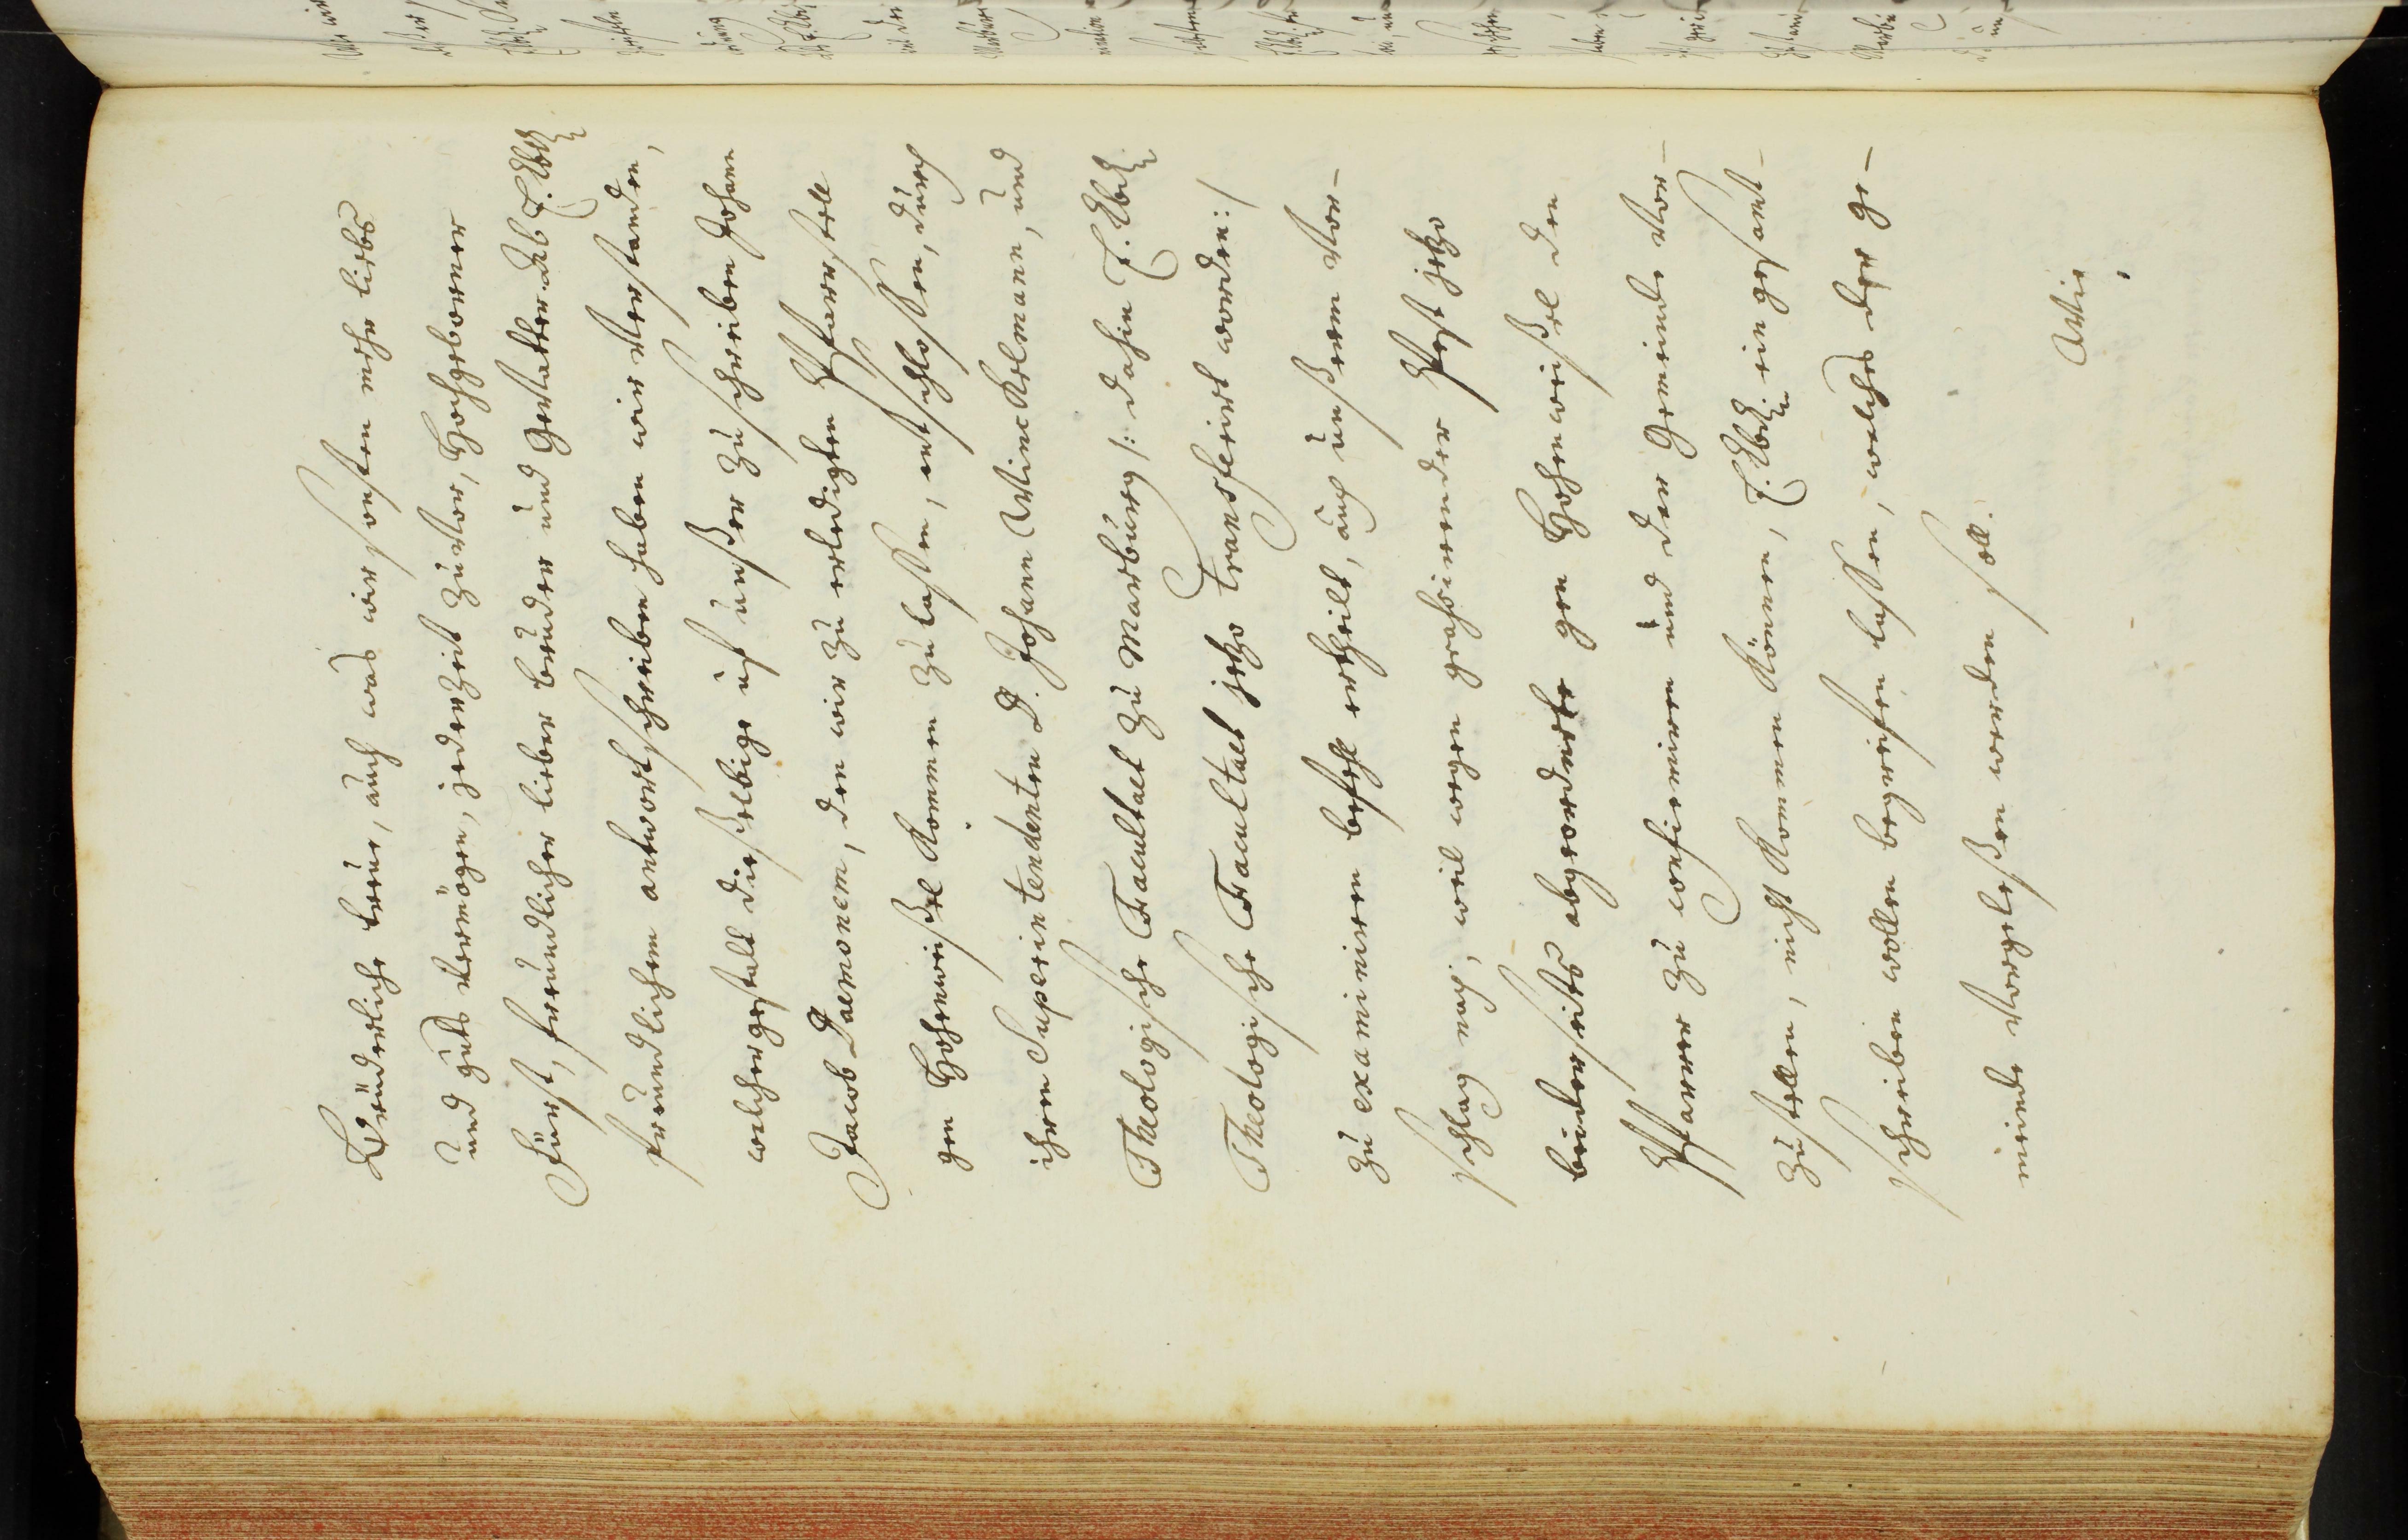 Brüderliche treue, auch was wir sonsten mehr liebs
und guts vermögen, jederzeit zuvor, Hochgeborner
Fürst, freundlicher lieber bruder und Gevatter. Ab E. Lbd.
freundlichem antwortschreiben haben wir verstanden,
welchergestalt dieselbige uf unser zuschreiben Johann
Jacob Daemonem, den wir zu erledigten Pfarrstell
gen Hohenweisel kommen zu lassen, entschlossen, durch
ihren Superintendenten D. Johann Vinckelmann, und
Theologische Facultaet zu Marburg /: dahin E. Lbd.
Theologische Facultaet jetzo transferirt worden :/
zu examiniren befehl ertheilt, auch unserem vor-
schlag nach, weil wegen grassirender Pest jetzo
beiderseits abgeordnete gen Hohenweisel den
Pfarrer zu confirmiren und der Gemeinde vor-
zustellen, nicht kommen können, E. Lbd. ein gesamt-
schreiben wollen begreifen lassen, welches der ge-
meinde vorgelesen werden soll.
Wie